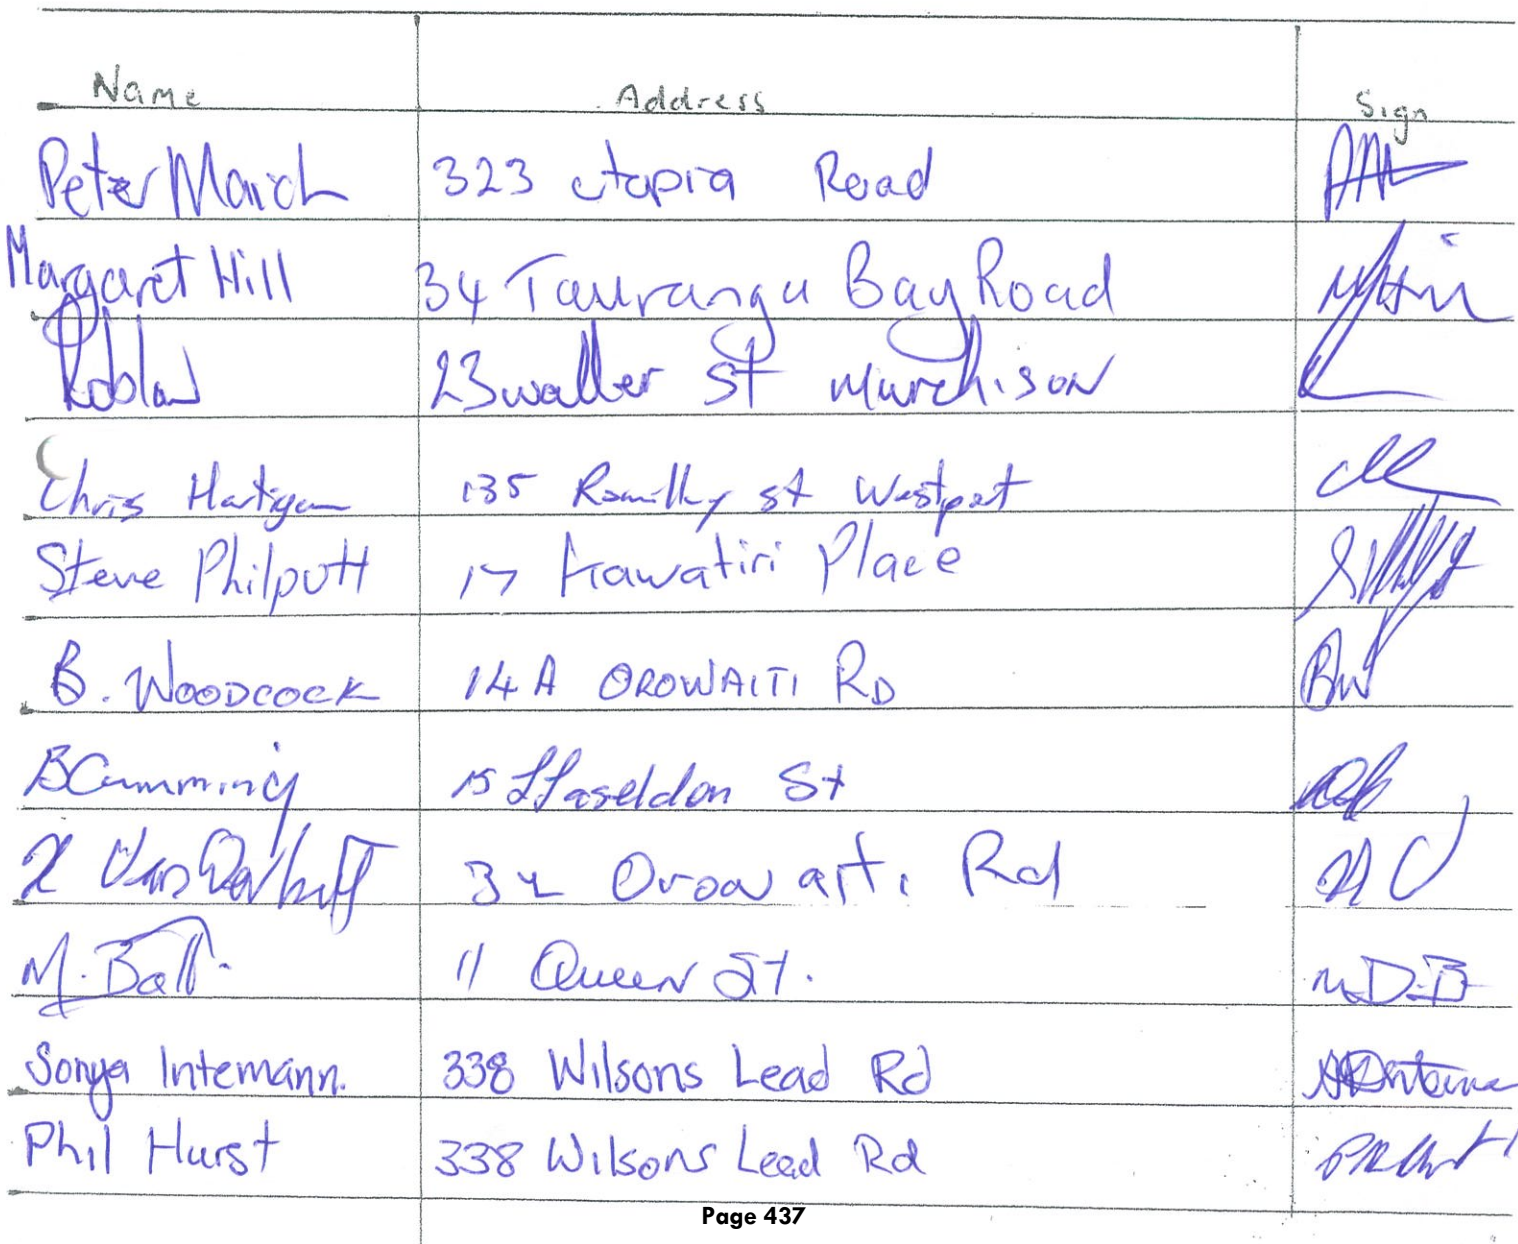 Name Address Sign
Peter March 323 utopia Road
Margaret Hill 34 Tauranga Bay Road
23 waller St Murchison
Chris Hartigan 135 Romilly st Westport
Steve Philpott 17 Kawatiri Place
B. WOODCOCK 14A OROWAITI RD BW
B Cumming 15 Haseldon St
34 Orowaiti Rd
M. Ball. 11 Queen St. M.D.B
Sonya Intemann. 338 Wilsons Lead Rd
Phil Hurst 338 Wilsons Lead Rd
Page 437